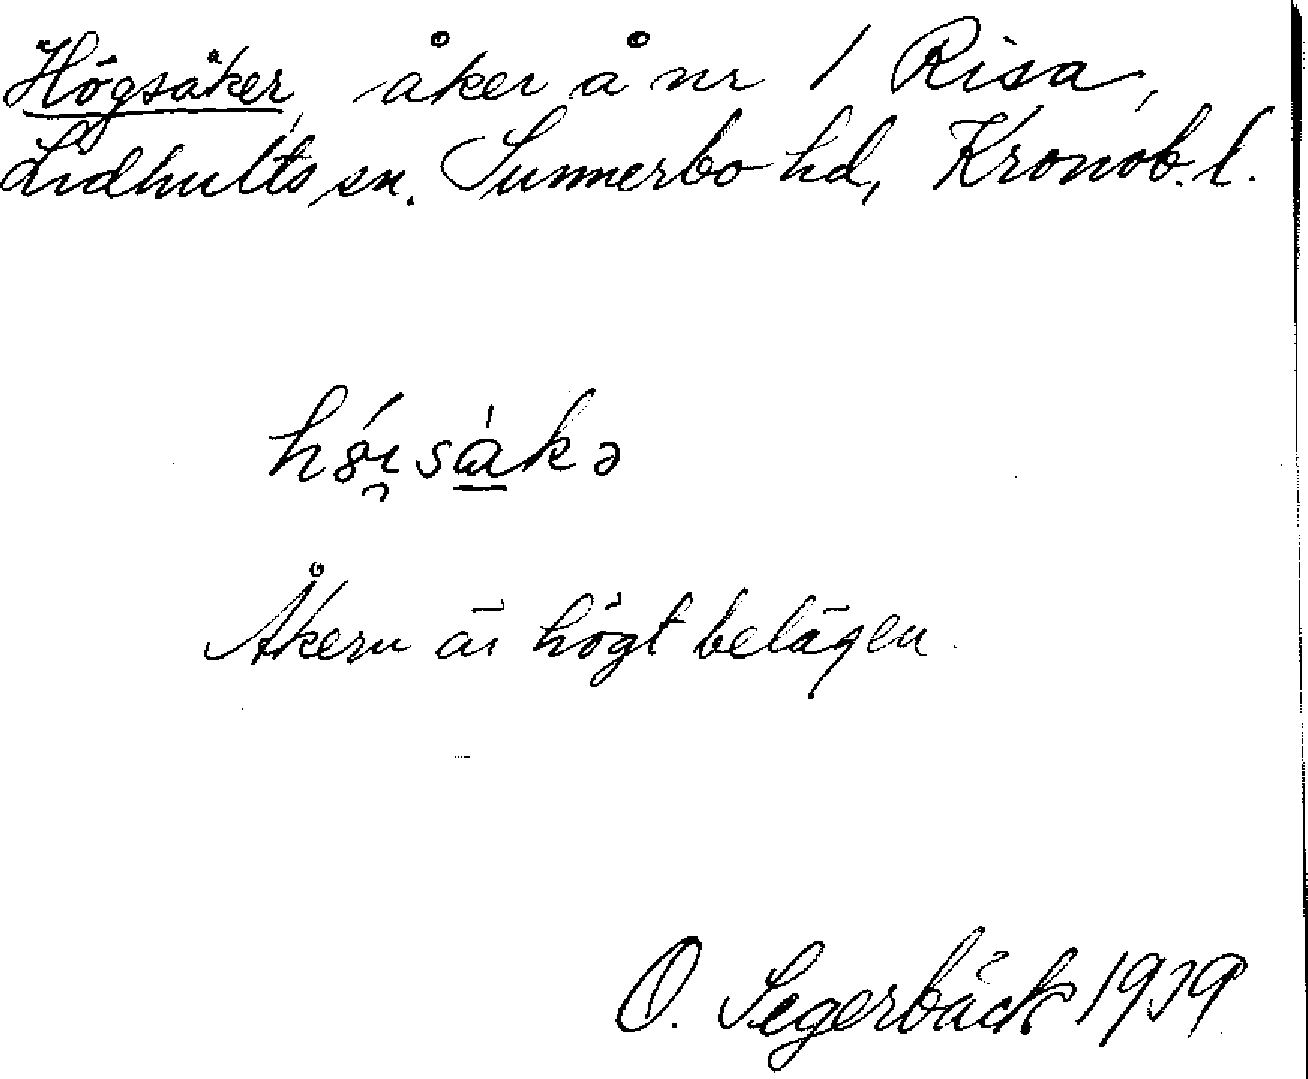 Högsåker, åker å nr 1 Risa,
Lidhults sn. Sunnerbo hd, Kronob. l.
Åkern är högt belägen.
O. Segerbäck 1939